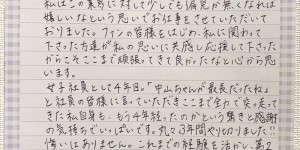 私はこの業界に対して少しでも偏見が無くなれば
嬉しいなという思いでお仕事をさせていただいて
おりました。ファンの皆様をはじめ、私に関わって
下さった方達が私の思いに共感し応援して下さった
からこそここまで頑張ってきて良かったなと心から思
います。
女子社長として4年目。「中山ちゃんが最長だったね」
と社長の皆様に言っていただきここまで全力で突っ走って
きた私自身も、もう4年経ったのかという驚きと感謝
の気持ちでいっぱいです。丸々3年間やり切りました!!
悔いはありません。これまでの経験を活かし、第2